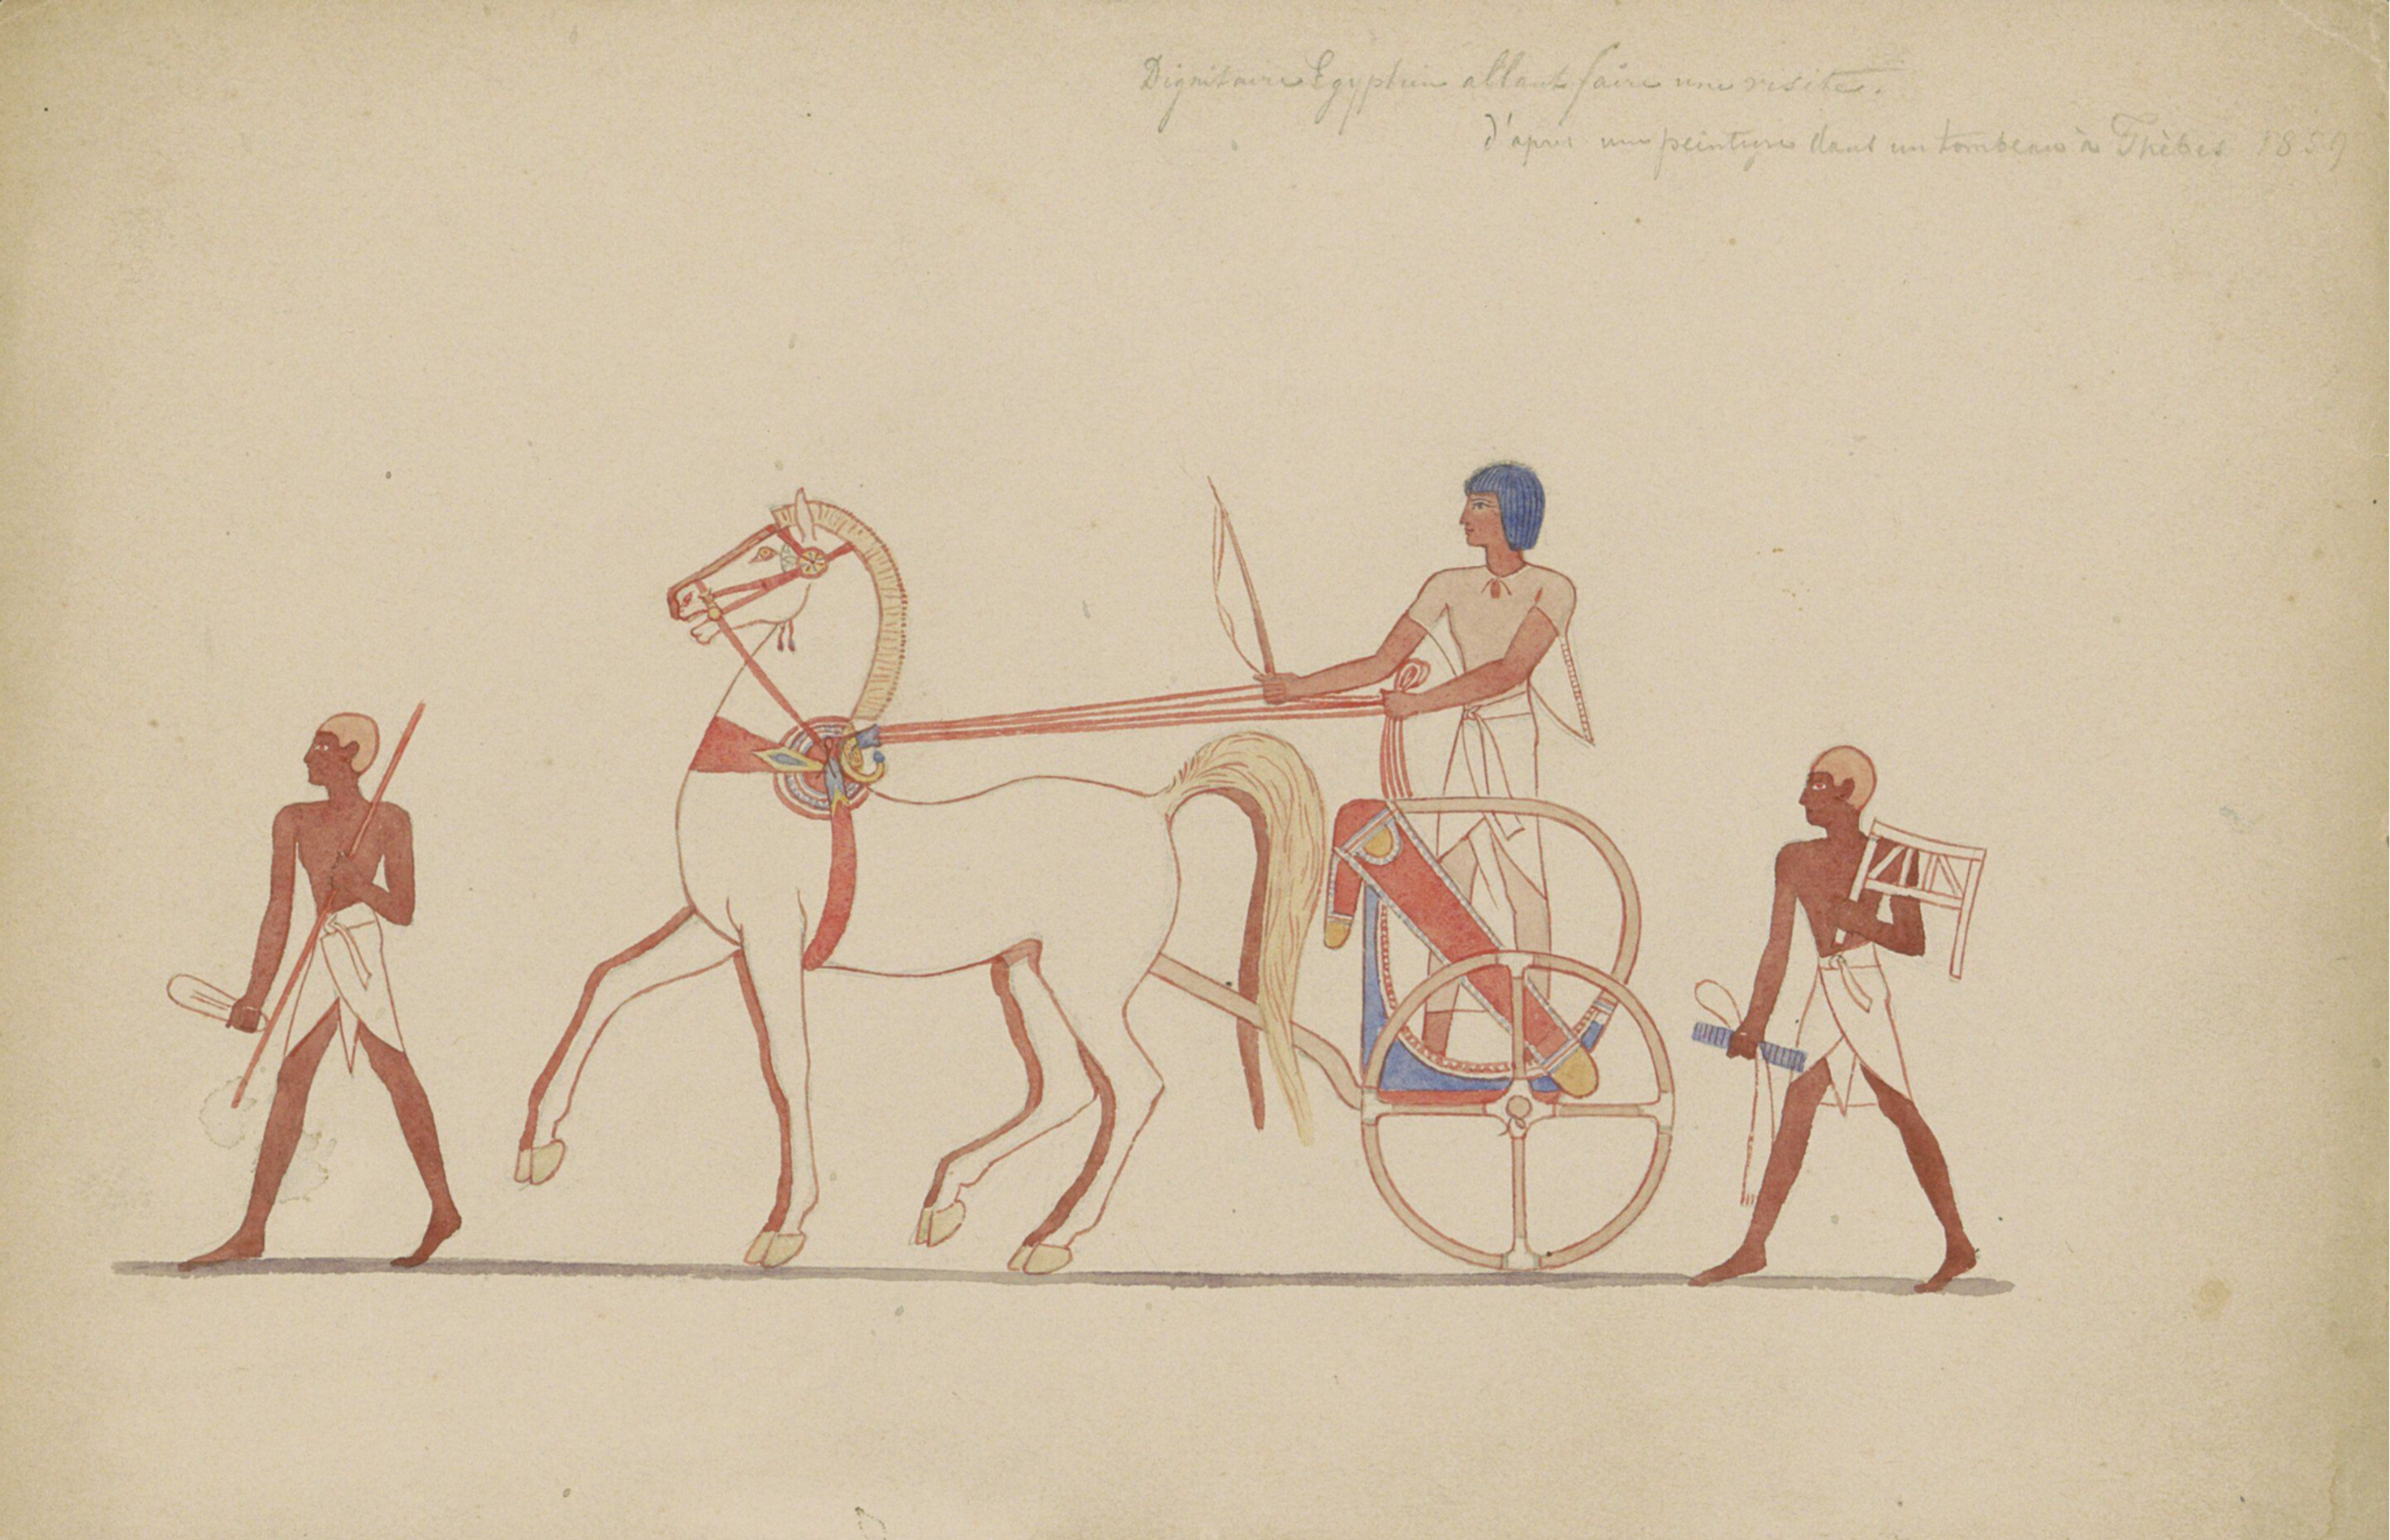 Dignitaire Egyptien allant faire une visite.
d'après une peinture dans un tombeau à Thèbes 1859